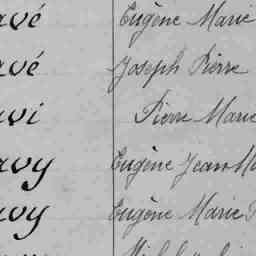 avé Eugène Marie
avé Joseph Pierre
avi Pierre Marie
avy Eugène Jean M
avy Eugène Marie